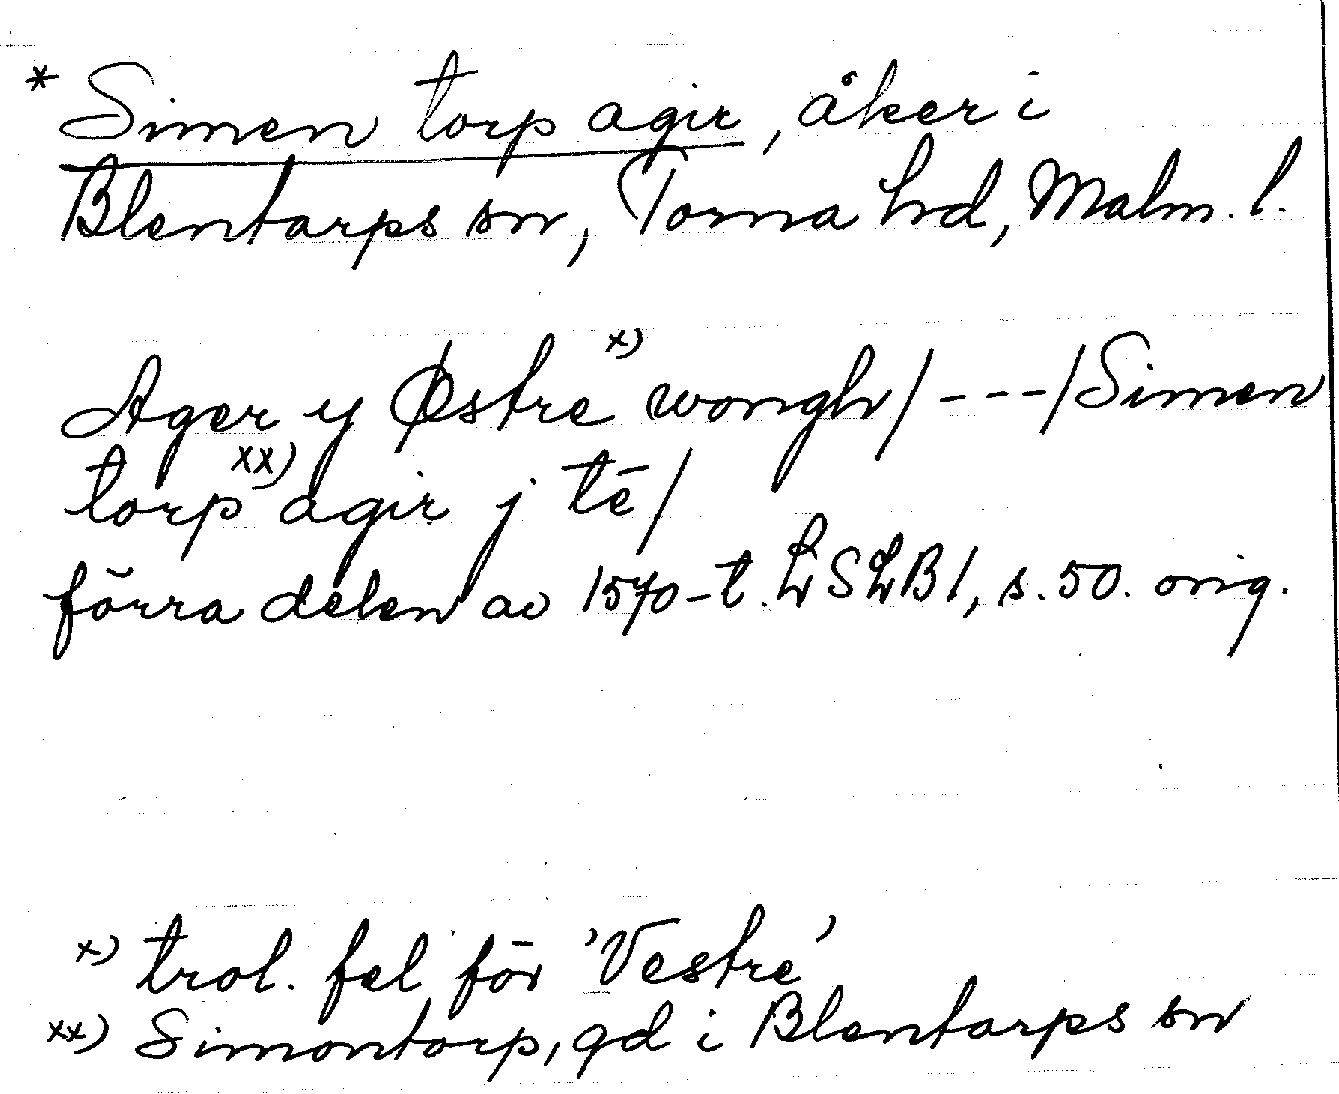 * Simen torp agir, åker i
Blentarps sn, Torna hd, Malm. l.
Ager y Østre x) wongh/ - - - / Simen
torp xx) agir j tē/
förra delen av 1570-t. LSLB1, s. 50. orig.
x) trol. fel för 'Vestre'
xx) Simontorp, gd i Blentarps sn